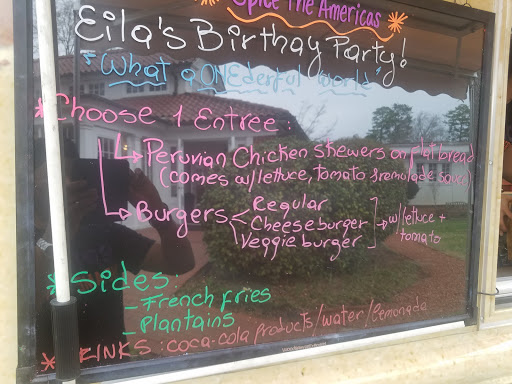 Spice The Americas
Eila's Birthay Party!
"What a ONEderful World"
*Choose 1 Entree:
Peruvian Chicken skewers on flat bread
(comes w/lettuce, tomato & remolade sauce)
Burgers Regular
Cheeseburger w/lettuce +
Veggie burger tomato
*Sides:
- French fries
- Plantains
*DRINKS: coca-cola products/water/lemonada